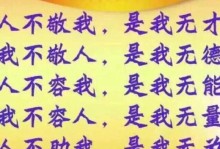 人不敬我，是我无才
我不敬人，是我无德
人不容我，是我无能
我不容人，是我无量
人不助我，是我无